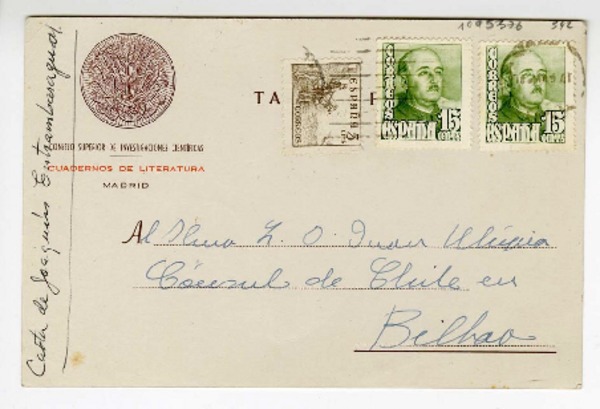 1095376 392
CORREOS
ESPAÑA 15
CORREOS
ESPAÑA 15
CORREOS
ESPAÑA
5 CTS
TA
CONSEJO SUPERIOR DE INVESTIGACIONES CIENTÍFICAS
CUADERNOS DE LITERATURA
MADRID
Al Ilmo Z. O. Juan
Cónsul de Chile en
Bilbao
Carta de Joaquín Entrambasaguas